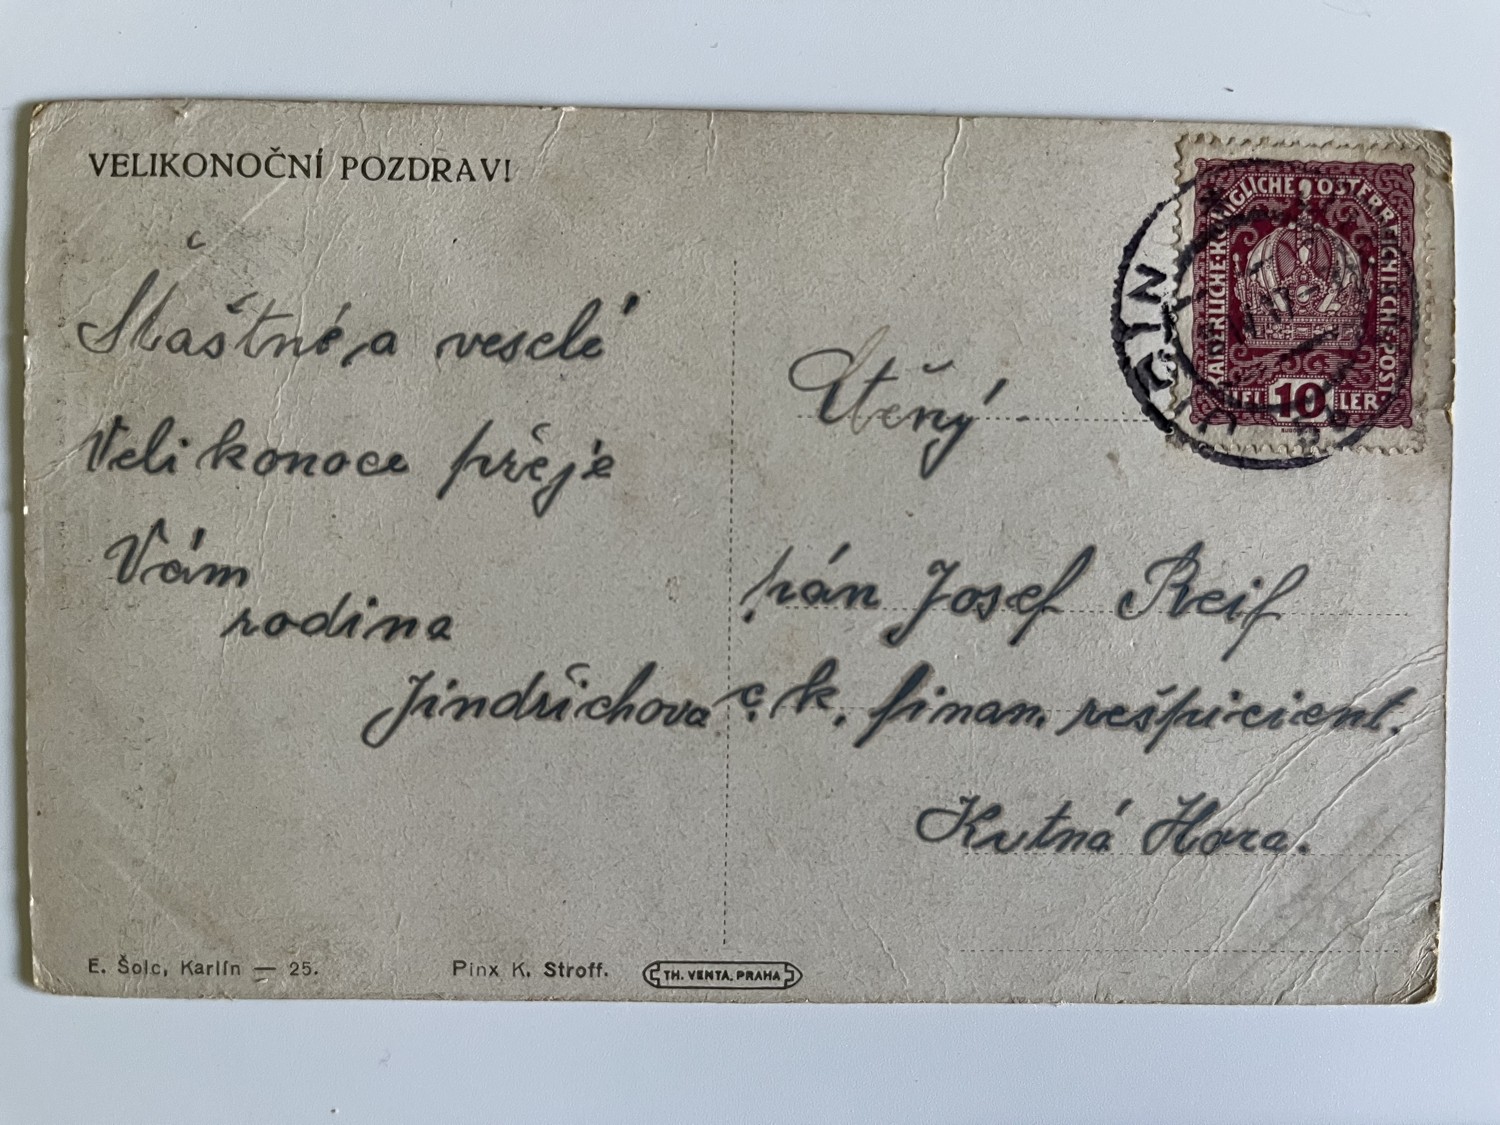 VELIKONOČNÍ POZDRAV!
Štastné a veselé
Velikonoce přeje
Vám
rodina
Jindřichova
KAISERLICHE KÖNIGLICHE ÖSTERREICHISCHE POST
HELLER
10
JIČÍN
17
Ctěný
pán Josef Reif
c. k. finan. rešpicient.
Kutná Hora.
E. Šolc, Karlín — 25.
Pinx K. Stroff.
TH. VENTA, PRAHA